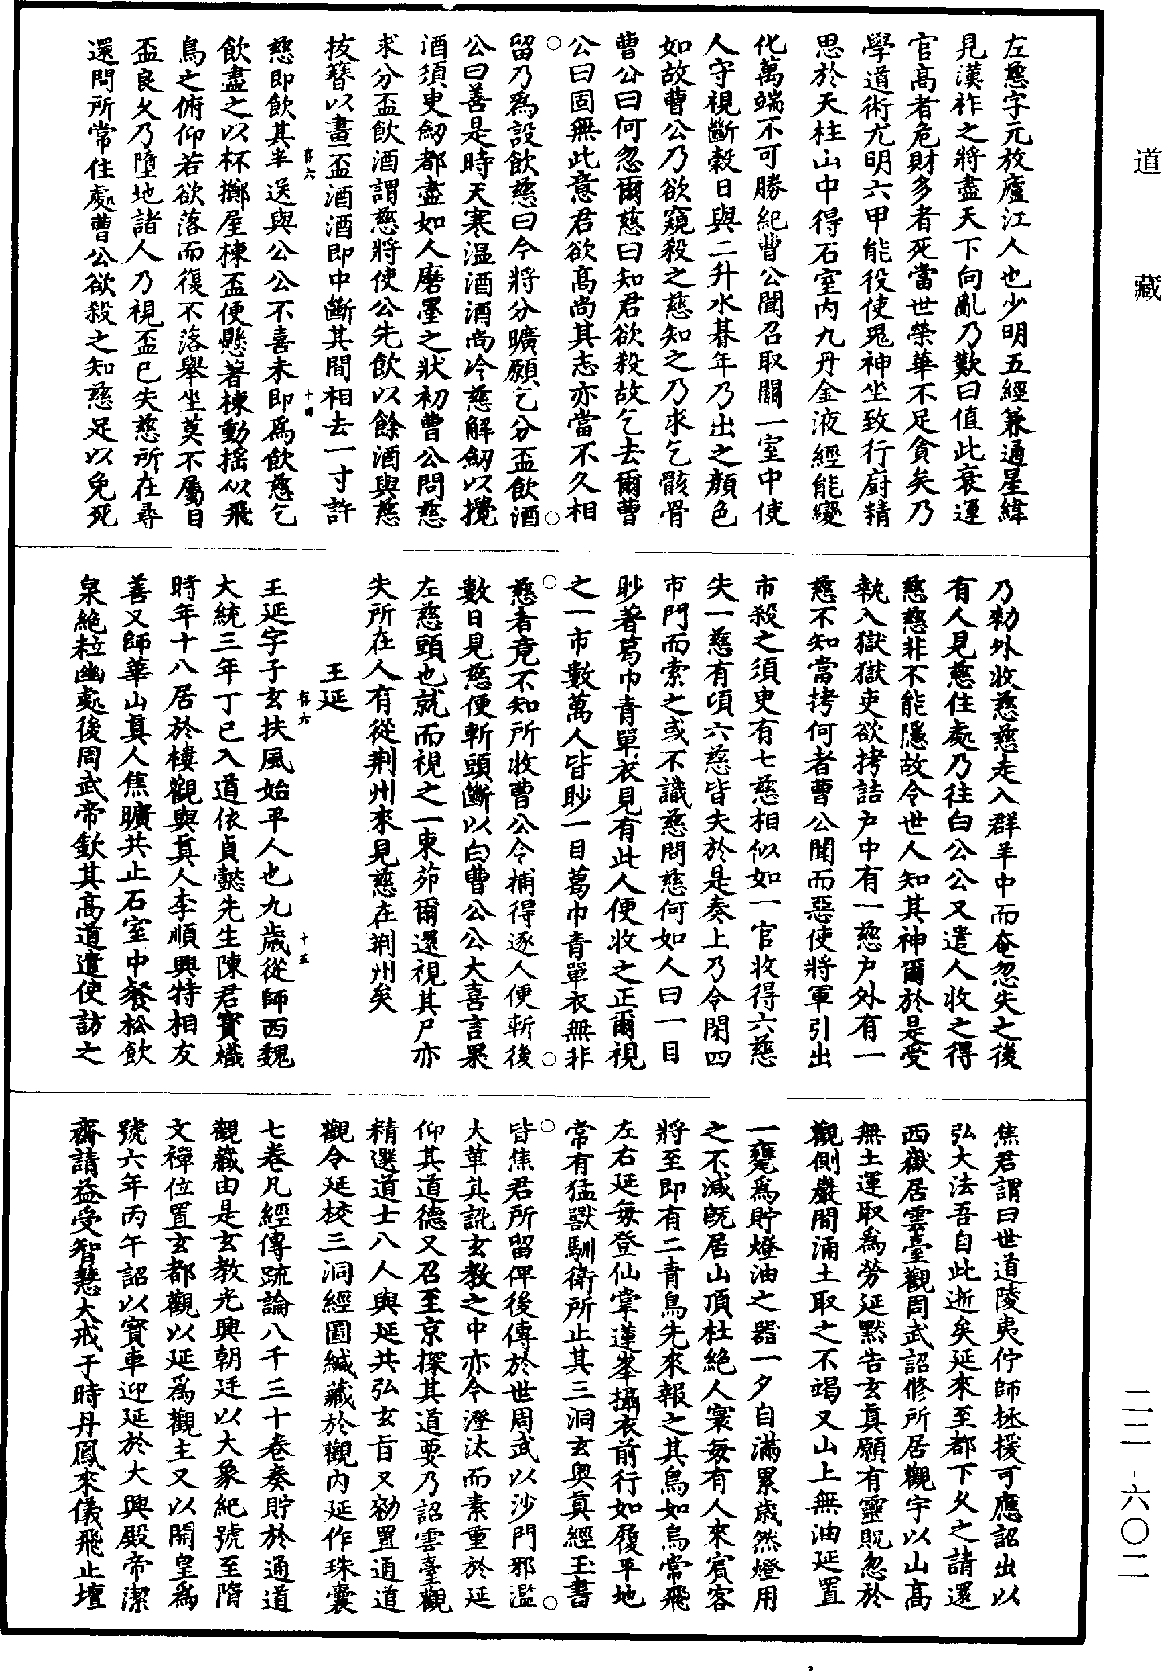 道藏
二二-六〇二
左慈字元放廬江人也少明五經兼通星緯
見漢祚之將盡天下向亂乃歎曰值此衰運
官高者危財多者死當世榮華不足貪矣乃
學道術尤明六甲能役使鬼神坐致行廚精
思於天柱山中得石室內九丹金液經能變
化萬端不可勝紀曹公聞召取關一室中使
人守視斷穀日與二升水朞年乃出之顏色
如故曹公乃欲窺殺之慈知之乃求乞骸骨
曹公曰何忽爾慈曰知君欲殺故乞去爾曹
公曰固無此意君欲高尚其志亦當不久相
留乃為設飲慈曰今將分曠願乞分盃飲酒
公曰善是時天寒溫酒酒尚冷慈解劒以攪
酒須臾劒都盡如人磨墨之狀初曹公問慈
求分盃飲酒謂慈將使公先飲以餘酒與慈
拔簪以畫盃酒酒即中斷其間相去一寸許
慈即飲其半送與公公不喜未即為飲慈乞
飲盡之以杯擲屋棟盃便懸著棟動搖似飛
鳥之俯仰若欲落而復不落舉坐莫不屬目
盃良久乃墮地諸人乃視盃已失慈所在尋
還問所常住處曹公欲殺之知慈足以免死
乃勑外收慈慈走入群羊中而奄忽失之後
有人見慈住處乃往白公公又遣人收之得
慈慈非不能隱故令世人知其神爾於是受
執入獄獄吏欲拷詰户中有一慈户外有一
慈不知當拷何者曹公聞而惡使將軍引出
市殺之須臾有七慈相似如一官收得六慈
失一慈有頃六慈皆失於是奏上乃令閉四
市門而索之或不識慈問慈何如人曰一目
眇著葛巾青單衣見有此人便收之正爾視
之一市數萬人皆眇一目葛巾青單衣無非
慈者竟不知所收曹公令捕得逐人便斬後
數日見慈便斬頭斷以白曹公公大喜言果
左慈頭也就而視之一束茆爾還視其尸亦
失所在人有從荆州來見慈在荆州矣
王延
王延字子玄扶風始平人也九歲從師西魏
大統三年丁巳入道依貞懿先生陳君寶熾
時年十八居於樓觀與真人李順興特相友
善又師華山真人焦曠共止石室中餐松飲
泉絕粒幽處後周武帝欽其高道遣使訪之
焦君謂曰世道陵夷佇師拯援可應詔出以
弘大法吾自此逝矣延來至都下久之請還
西嶽居雲臺觀周武詔修所居觀宇以山高
無土運取為勞延默告玄真願有靈貺忽於
觀側巖間涌土取之不竭又山上無油延置
一甕為貯燈油之器一夕自滿累歲然燈用
之不減既居山頂杜絕人寰每有人來賓客
將至即有二青鳥先來報之其鳥如烏常飛
左右延每登仙掌蓮峯攝衣前行如履平地
常有猛獸馴衛所止其三洞玄奥真經玉書
皆焦君所留俾後傳於世周武以沙門邪濫
大革其訛玄教之中亦令澄汰而素重於延
仰其道德又召至京探其道要乃詔雲臺觀
精選道士八人與延共弘玄旨又勑置通道
觀令延校三洞經圖緘藏於觀内延作珠囊
七卷凡經傳疏論八千三十卷奏貯於通道
觀藏由是玄教光興朝廷以大象紀號至隋
文禪位置玄都觀以延為觀主又以開皇為
號六年丙午詔以寶車迎延於大興殿帝潔
齋請益受智慧大戒于時丹鳳來儀飛止壇